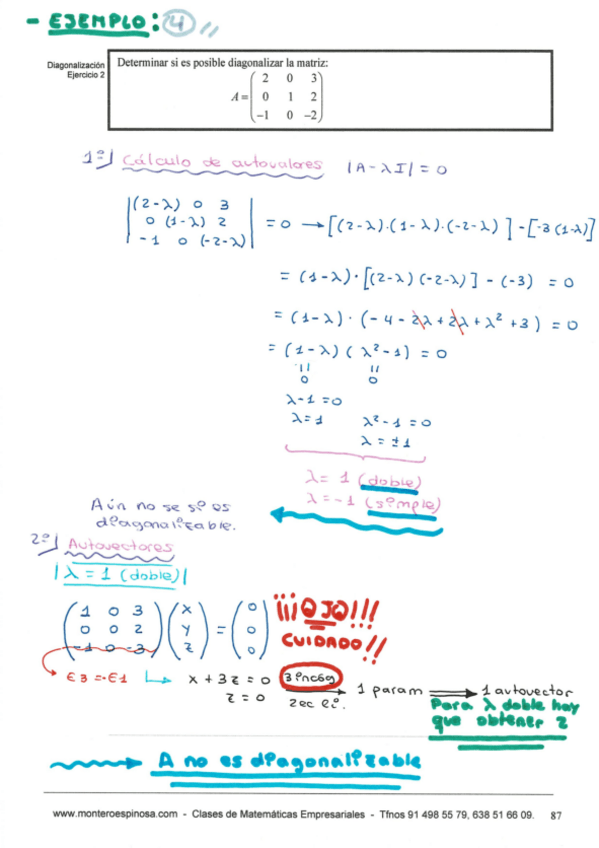 - EJEMPLO: 4 //
Diagonalización
Ejercicio 2
Determinar si es posible diagonalizar la matriz:
2 0 3
A = 0 1 2
−1 0 −2
1º) Cálculo de autovalores |A - λI| = 0
|(2-λ) 0 3|
|0 (1-λ) 2| = 0 → [(2-λ)·(1-λ)·(-2-λ)] - [-3(1-λ)]
|-1 0 (-2-λ)|
= (1-λ)·[(2-λ)(-2-λ)] - (-3) = 0
= (1-λ)·(-4 - 2λ + 2λ + λ² + 3) = 0
= (1-λ)(λ²-1) = 0
" "
0 0
λ-1=0
λ=1 λ²-1=0
λ = ±1
λ = 1 (doble)
λ = -1 (simple)
Aún no se si es
diagonalizable.
2º) Autovectores
|λ = 1 (doble)|
1 0 3 x 0
0 0 2 y = 0
-1 0 -3 z 0
¡¡¡OJO!!!
CUIDADO!!
E3 = -E1 x + 3z = 0 3 incóg → 1 param ⇒ 1 autovector
z = 0 2 ec li.
Para λ doble hay
que obtener 2
A no es diagonalizable
www.monteroespinosa.com - Clases de Matemáticas Empresariales - Tfnos 91 498 55 79, 638 51 66 09. 87